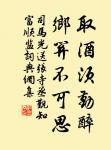 取酒须勤醉
乡关不可思
司马光送张寺丞觐知
富顺监词典网集